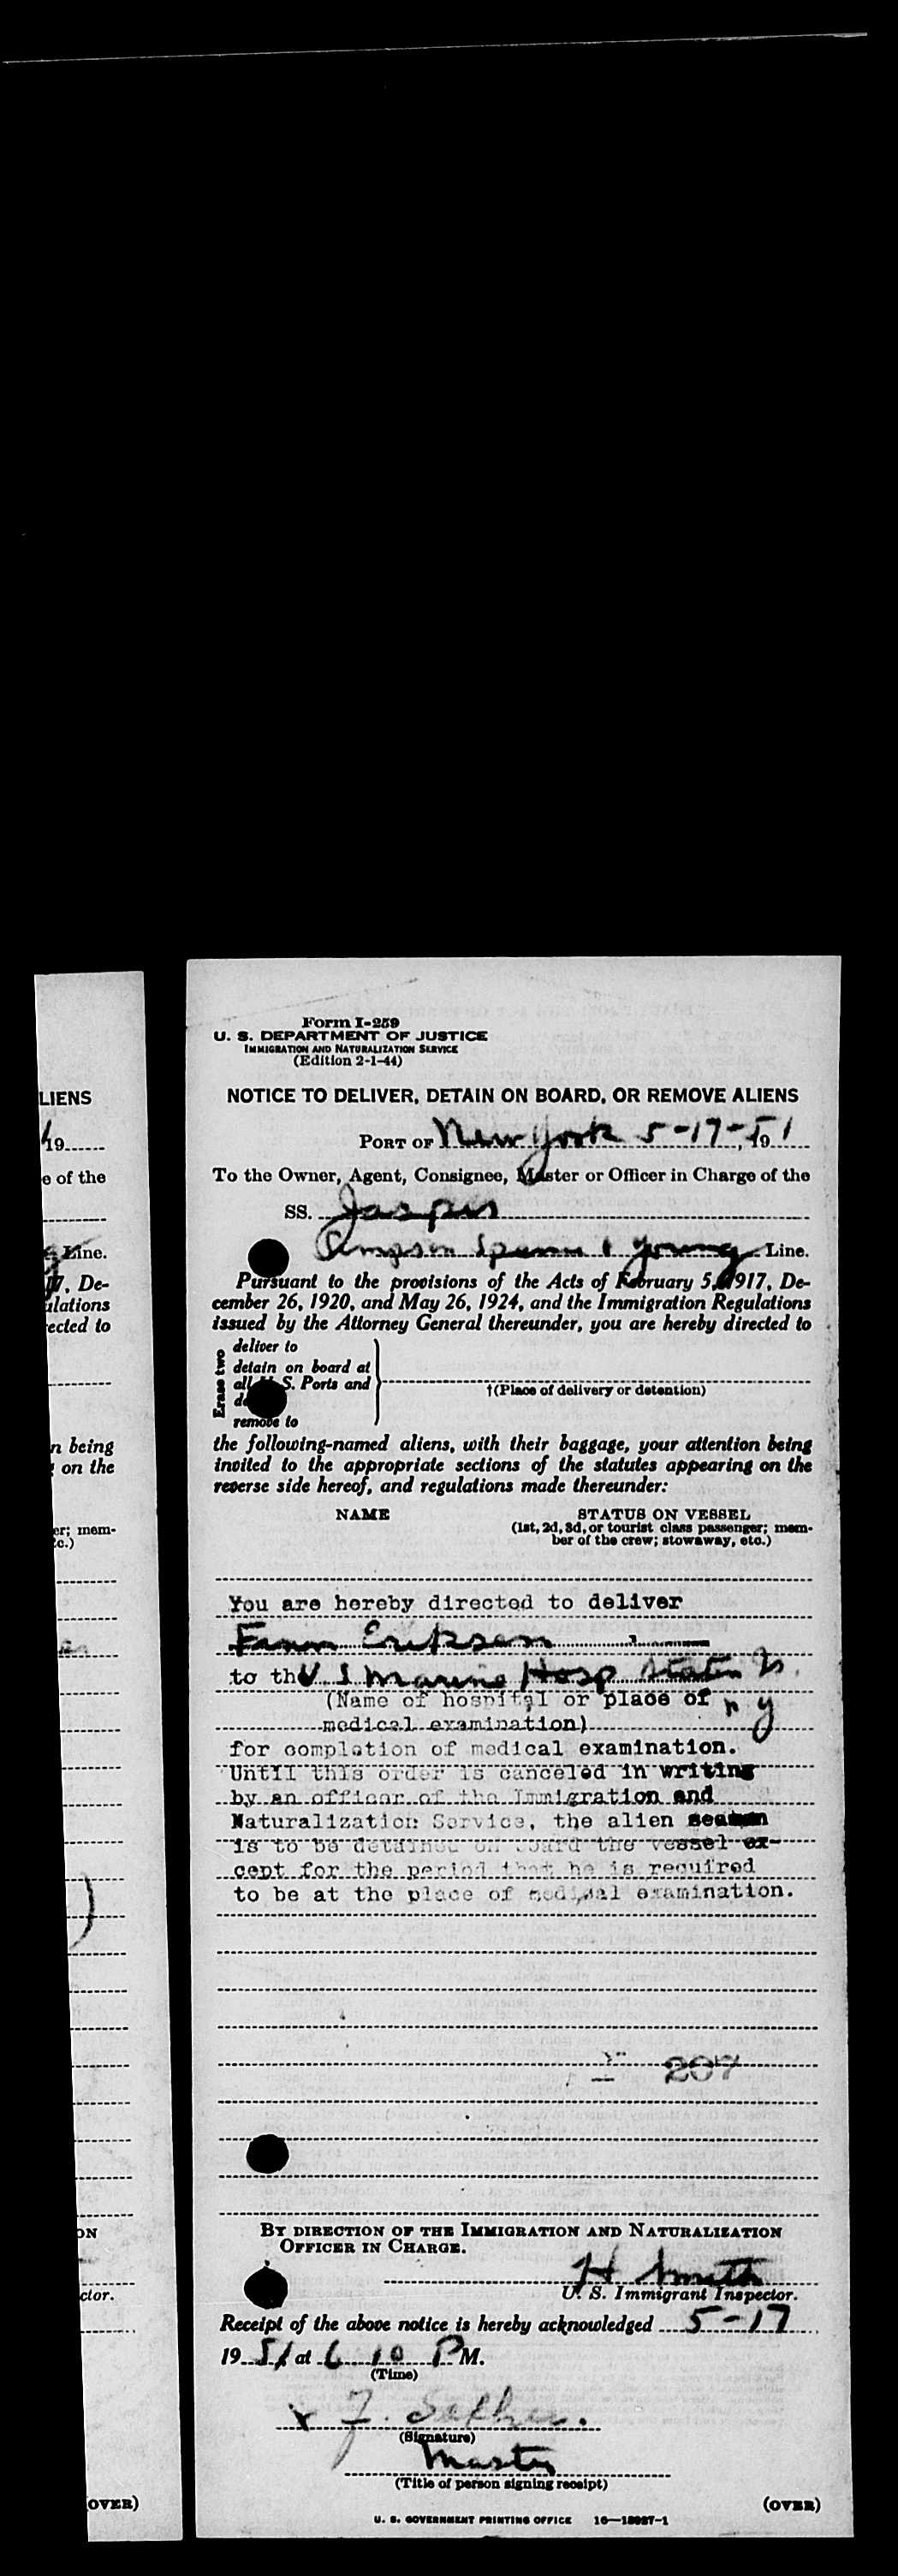 LIENS
19
e of the
Line.
17, De-
ulations
ected to
n being
on the
er; mem-
c.)
ON
ctor.
OVER)
Form I-259
U. S. DEPARTMENT OF JUSTICE
IMMIGRATION AND NATURALIZATION SERVICE
(Edition 2-1-44)
NOTICE TO DELIVER, DETAIN ON BOARD, OR REMOVE ALIENS
PORT OF New York 5-17-, 1951
To the Owner, Agent, Consignee, Master or Officer in Charge of the
SS. Jasper
Young Line.
Pursuant to the provisions of the Acts of February 5, 1917, De-
cember 26, 1920, and May 26, 1924, and the Immigration Regulations
issued by the Attorney General thereunder, you are hereby directed to
Erase two
deliver to
detain on board at
all U. S. Ports and
remove to
†(Place of delivery or detention)
the following-named aliens, with their baggage, your attention being
invited to the appropriate sections of the statutes appearing on the
reverse side hereof, and regulations made thereunder:
NAME STATUS ON VESSEL
(1st, 2d, 3d, or tourist class passenger; mem-
ber of the crew; stowaway, etc.)
You are hereby directed to deliver
Eriksen
to th U S Marine Hosp Staten Is.
(Name of hospital or place of N Y
medical examination)
for completion of medical examination.
Until this order is canceled in writing
by an officer of the Immigration and
Naturalization Service, the alien seaman
is to be detained on board the vessel ex-
cept for the period that he is required
to be at the place of medical examination.
207
BY DIRECTION OF THE IMMIGRATION AND NATURALIZATION
OFFICER IN CHARGE.
H Smith
U. S. Immigrant Inspector.
Receipt of the above notice is hereby acknowledged 5-17
1951 at 6 10 P M.
(Time)
x J.
(Signature)
Master
(Title of person signing receipt)
(OVER)
U. S. GOVERNMENT PRINTING OFFICE 16—18027-1